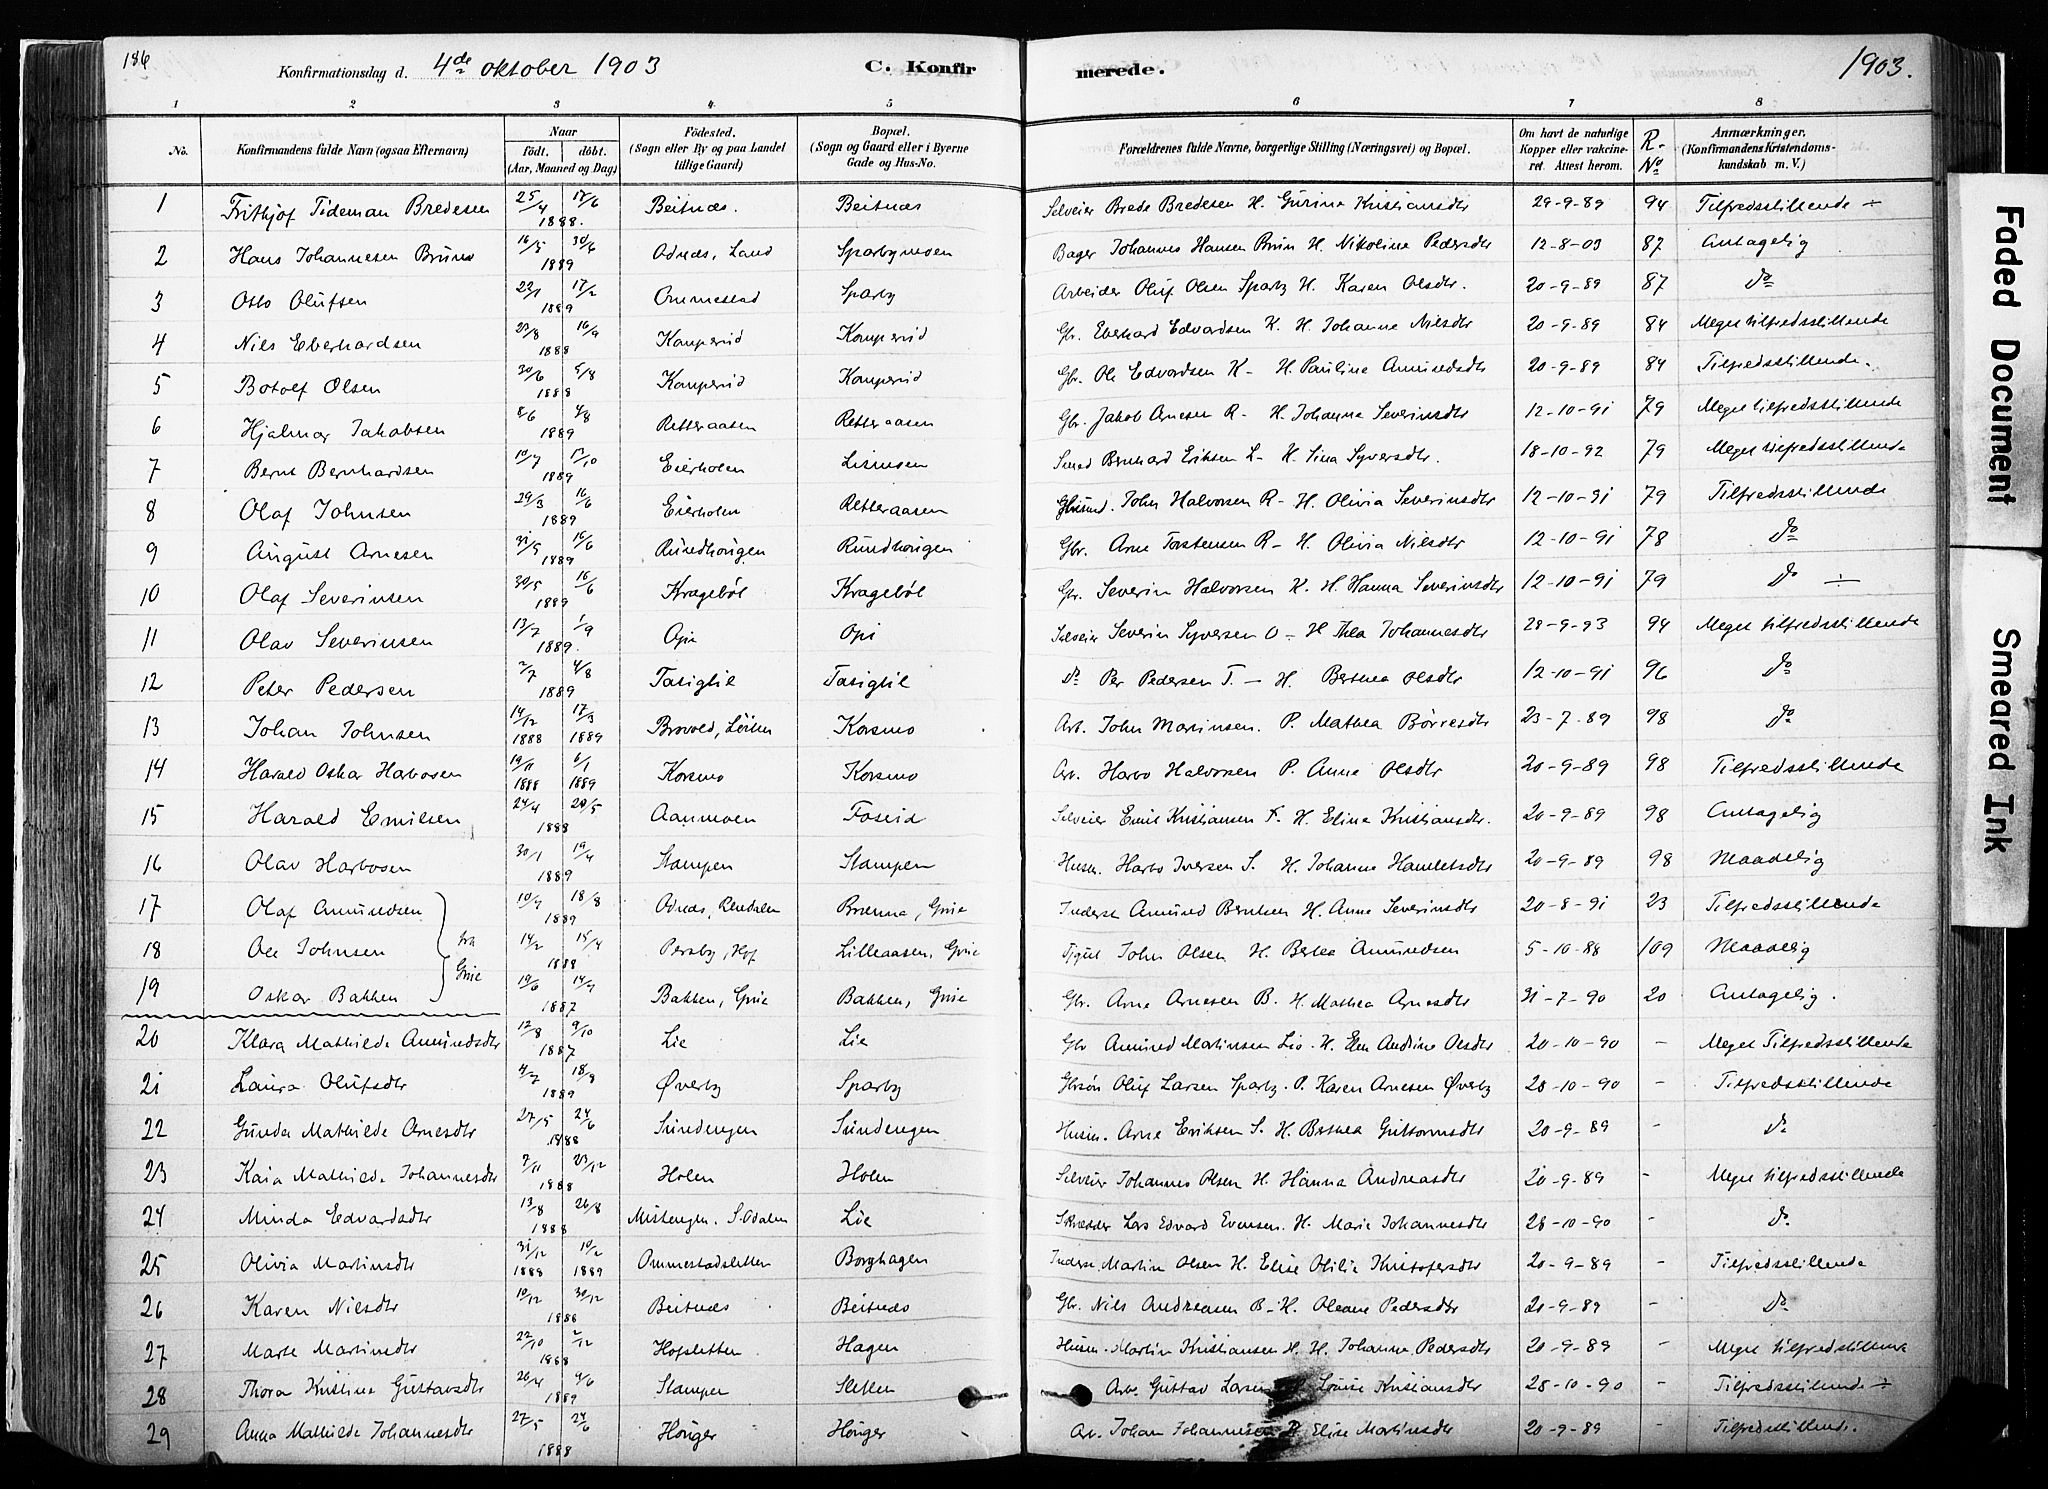 186
Konfirmationsdag d. 4de oktober 1903 C. Konfir merede. 1903.
1 2 3 4. 5 6 7 8
No. Konfirmandens fulde Navn (ogsaa Efternavn) Naar födt. döbt. (Aar, Maaned og Dag) Födested. (Sogn eller By og paa Landet tillige Gaard) Bopæl. (Sogn og Gaard eller i Byerne Gade og Hus-No.) Forældrenes fulde Navne, borgerlige Stilling (Næringsvei) og Bopæl. Om havt de naturlige Kopper eller vakcineret. Attest herom. R. No Anmærkninger. (Konfirmandens Kristendomskundskab m. V.)
1 Frithjof Tideman Bredesen 25/4 17/6 1888. Beitnæs. Beitnæs Selveier Brede Bredesen H. Gurina Kristiansdtr 29-9-89 94 Tilfredsstillende ÷
2 Hans Johannesen Brun 16/5 30/6 1889 Odnæs, Land Sparbymoen Bager Johannes Hansen Brun H. Nikoline Pedersdtr 12-8-03 87 Antagelig
3 Otto Olufsen 22/1 17/2 1889 Ommestad Sparby Arbeider Oluf Olsen Sparby H. Karen Olsdtr. 20-9-89 87 do
4 Nils Eberhardsen 23/8 16/9 1888 Kamperud Kamperud Gbr. Eberhard Edvardsen K. H. Johanne Nilsdtr 20-9-89 84 Meget tilfredsstillende
5 Botolf Olsen 30/6 5/8 1888 Kamperud Kamperud Gbr. Ole Edvardsen K- H. Pauline Amundsdtr 20-9-89 84 Tilfredsstillende.
6 Hjalmar Jakobsen 8/6 4/8 1889 Retteraasen Retteraasen Gbr. Jakob Arnesen R- H. Johanna Severinsdtr 12-10-91 79 Meget tilfredsstillende
7 Bernt Bernhardsen 1889 Eierholen Smed Bernhard Eriksen L- H. Lina Syversdtr. 18-10-92 79 Meget tilfredsstillende
8 Olaf Johnsen 29/3 16/6 1889 Eierholen Retteraasen John Halvorsen R- H. Olivia Severinsdtr 12-10-91 79 Tilfredsstillende
9 August Arnesen 31/5 16/6 1889 Rundhougen Rundhougen Gbr. Arne Torstensen R- H. Olivia Nilsdtr 12-10-91 78 do
10 Olaf Severinsen 30/5 16/6 1889 Kragebøl Kragebøl Gbr. Severin Halvorsen K. H. Hanna Severinsdtr 12-10-91 79 do ÷
11 Olav Severinsen 13/7 1/9 1889. Opi Opi Selveier Severin Syversen O- H Thea Johannesdtr 28-9-93 94 Meget tilfredsstillende
12 Peter Pedersen 2/7 4/8 1889 Tasigtil Tasigtil do Per Pedersen T.- H. Berthea Olsdtr 12-10-91 96 do
13 Johan Johnsen 14/12 1888 17/3 1889 Brovold, Løiten Korsmo Arb. John Martinsen. P. Mathea Børresdtr 23-7-89 98 do
14 Harald Oskar Harbosen 19/11 1888 6/1 1889 Korsmo Korsmo Arb. Harbo Halvorsen P. Anne Olsdtr 20-9-89 98 Tilfredsstillende
15 Harald Emilsen 24/4 20/5 1888 Aanmoen Foseid Selveier Emil Kristiansen F. H. Elina Kristiansdtr. 20-9-89 98 Antagelig
16 Olav Harbosen 30/1 19/4 1889 Stampen Stampen Husm. Harbo Iversen S. H. Johanne Hamletsdtr 20-9-89 98 Maadelig
17 Olaf Amundsen 10/7 18/8 1889 Odnæs, Rendalen Brenna, Grue Inderst Amund Berntsen H. Anne Severinsdtr 20-8-91 23 Tilfredsstillende
18 Ole Johnsen 14/2 15/4 1888 Persby, Hof Lilleaasen, Grue John Olsen H. Berthea Amundsen 5-10-88 109 Maadelig
fra Grue
19 Oskar Bakken 19/6 14/9 1887 Bakken, Grue Bakken, Grue Gbr. Arne Arnesen B. H. Mathea Arnesdtr 31-7-90 20 Antagelig.
20 Klara Mathilde Amundsdtr 12/8 9/10 1887 Lie Lie Gbr Amund Martinsen Lie. H. Elen Andrine Olsdtr 20-10-90 - Meget Tilfredsstillende
21 Laura Olufsdtr 4/7 18/8 1889 Øverby Sparby Gbrsøn Oluf Larsen Sparby. P. Karen Arnesen Øverby 28-10-90 - Tilfredsstillende
22 Gunda Mathilde Arnesdtr 27/5 24/6 1888 Sundengen Sundengen Husm. Arne Eriksen S. H. Berthea Guttormsdtr 20-9-89 - do
23 Kaia Mathilde Johannesdtr 7/11 23/12 1888 Holen Holen Selveier Johannes Olsen H. Hanna Andreasdtr 20-9-89 - Meget tilfredsstillende
24 Minda Edvardsdtr 13/8 26/8 1888 Mistengen. S. Odalen Lie Skrædder Lars Edvard Evensen. H. Marie Johannesdtr 28-10-90 - do
25 Olivia Martinsdtr 31/12 1888 10/2 1889 Ommestadsletten Borghagen Inderst Martin Olsen H. Elise Otilie Kristofersdtr 20-9-89 - Tilfredsstillende
26 Karen Nilsdtr 10/12 30/12 1888 Beitnæs Beitnæs Gbr. Nils Andreasen B- H. Oleane Pedersdtr 20-9-89 - do
27 Marte Martinsdtr 22/10 2/12 1888 Hofsletten Hagen Husm. Martin Kristiansen H. H. Johanne Pedersdtr 20-9-89 - Meget tilfredsstillende
28 Thora Kristine Gustavsdtr 26/4 9/6 1889 Stampen Sletten Arb. Gustav Larsen H Louise Kristiansdtr 28-10-90 - Tilfredsstillende ÷
29 Anna Mathilde Johannesdtr 27/5 24/6 1888 Houger Houger Arb. Johan Johannesen P. Elise Martinsdtr 20-9-89 - Tilfredsstillende.
Faded Document
Smeared Ink